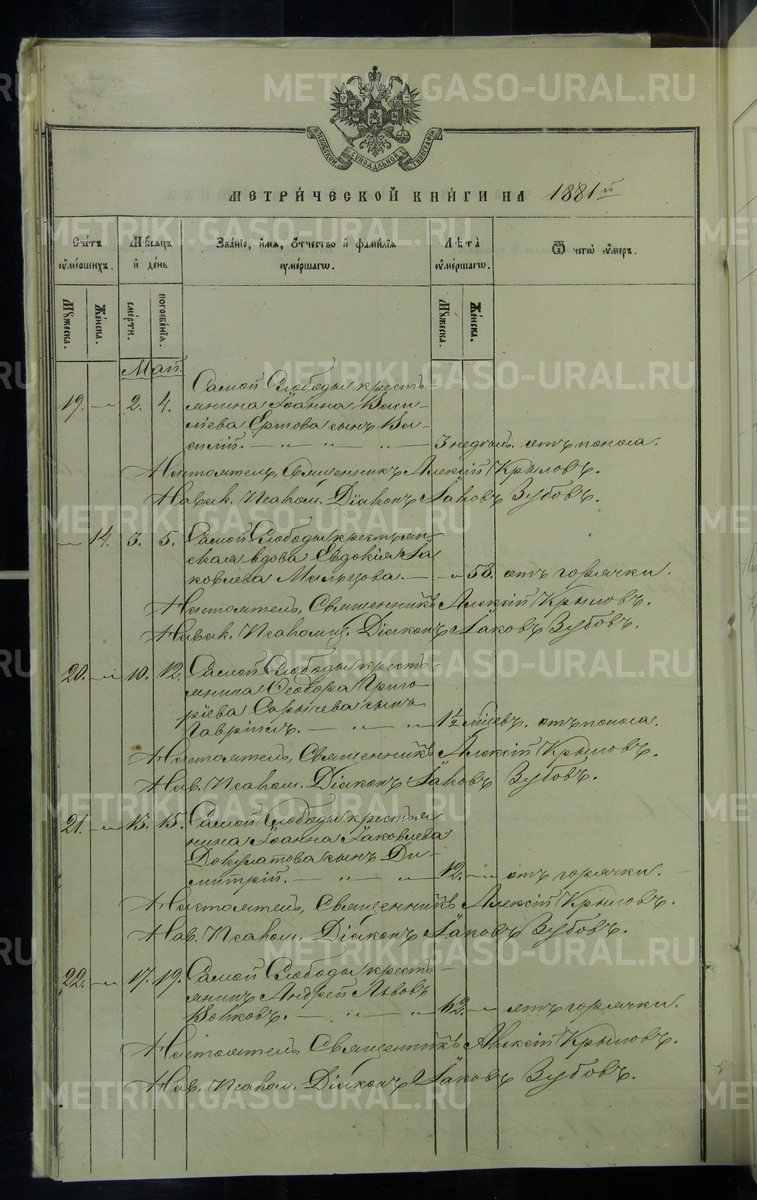 МЕТРИ́ЧЕСКОЙ КНИ́ГИ НА 1881й
Сче́тъ ѹме́ршихъ.
Мѹжеска.
Же́нска.
Мѣ́сяцъ и де́нь
сме́рти.
погребе́нїѧ.
Зва́нїе, и́мѧ, ѻ́тчество и҆ фами́лїѧ ѹме́ршагѡ.
Лѣ́та ѹме́ршагѡ.
Мѹжеска.
Же́нска.
Ѿ чегѡ̀ ѹ́меръ.
Май
19. — 2. 4. Самой Слободы кресть
янина Іоанна Васи-
лїева Ертова сынъ Ва-
силїй. — 3 недѣль. отъ поноса.
Настоятель, Священникъ Алексїй Крыловъ.
Псалом. Дїаконъ Іаковъ Зубовъ.
— 14. 3. 5. Самой Слободы крестьян-
ская вдова Евдокїя Іа-
ковлева Мальцова. — 58. отъ горячки.
Настоятель, Священникъ Алексїй Крыловъ.
Псаломщ. Дїаконъ Іаковъ Зубовъ.
20. — 10. 12. Самой Слободы кресть-
янина Ѳеодора Григо-
рїева Сарычева сынъ
Гаврїилъ. — 1½ мѣсяц. отъ поноса.
Настоятель, Священникъ Алексїй Крыловъ.
Псалом. Дїаконъ Іаковъ Зубовъ.
21. — 13. 15. Самой Слободы крестья
нина Іоанна Іаковлева
Докулатова сынъ Ди-
митрїй. — 12. — отъ горячки.
Настоятель, Священникъ Алексїй Крыловъ.
Псалом. Дїаконъ Іаковъ Зубовъ.
22. — 17. 19. Самой Слободы кресть-
янинъ Андрей Львовъ
Волковъ. — 62. — отъ горячки.
Настоятель, Священникъ Алексїй Крыловъ.
Псалом. Дїаконъ Іаковъ Зубовъ.
METRIKI.GASO-URAL.RU